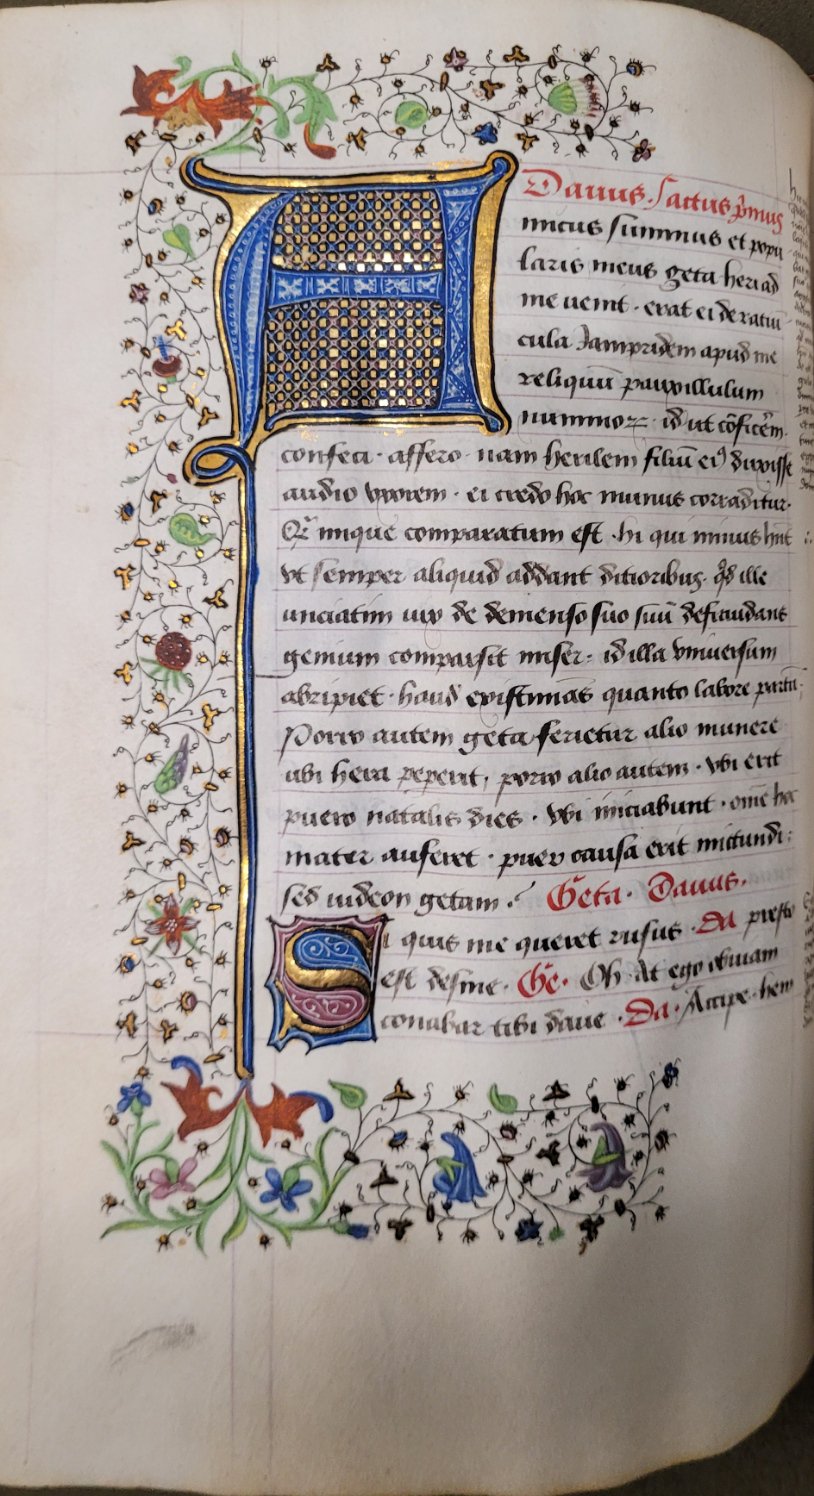 Dauus. Actus p̄mus
A micus summus et popu
laris meus geta heri ad
me uenit · erat ei de ratiū
cula Jampridem apud me
reliquū pauxillulum
nummoꝝ · id ut cōficerē ·
confeci · affero · nam herilem filiū eiꝰ duxisse
audio vxorem · ei credo hoc munus corraditur ·
Q̄ inique comparatum est · hi qui minus hn̄t
vt semper aliquid addant ditioribus · qd̄ ille
unciatim uix de demenso suo suū defraudans
genium comparsit miser · id illa vniuersum
abripiet · haud existimās quanto labore partū ·
Porro autem geta ferietur alio munere
ubi hera peperit, porro alio autem · vbi erit
puero natalis dies · vbi iniciabunt · om̄e hoc
mater auferet · puer causa erit mittundi :
sed uideon getam · Geta · Dauus ·
Si quis me queret rufus · Da presto
est desine · Ge · Oh At ego obuiam
conabar tibi daue · Da · Accipe · hem